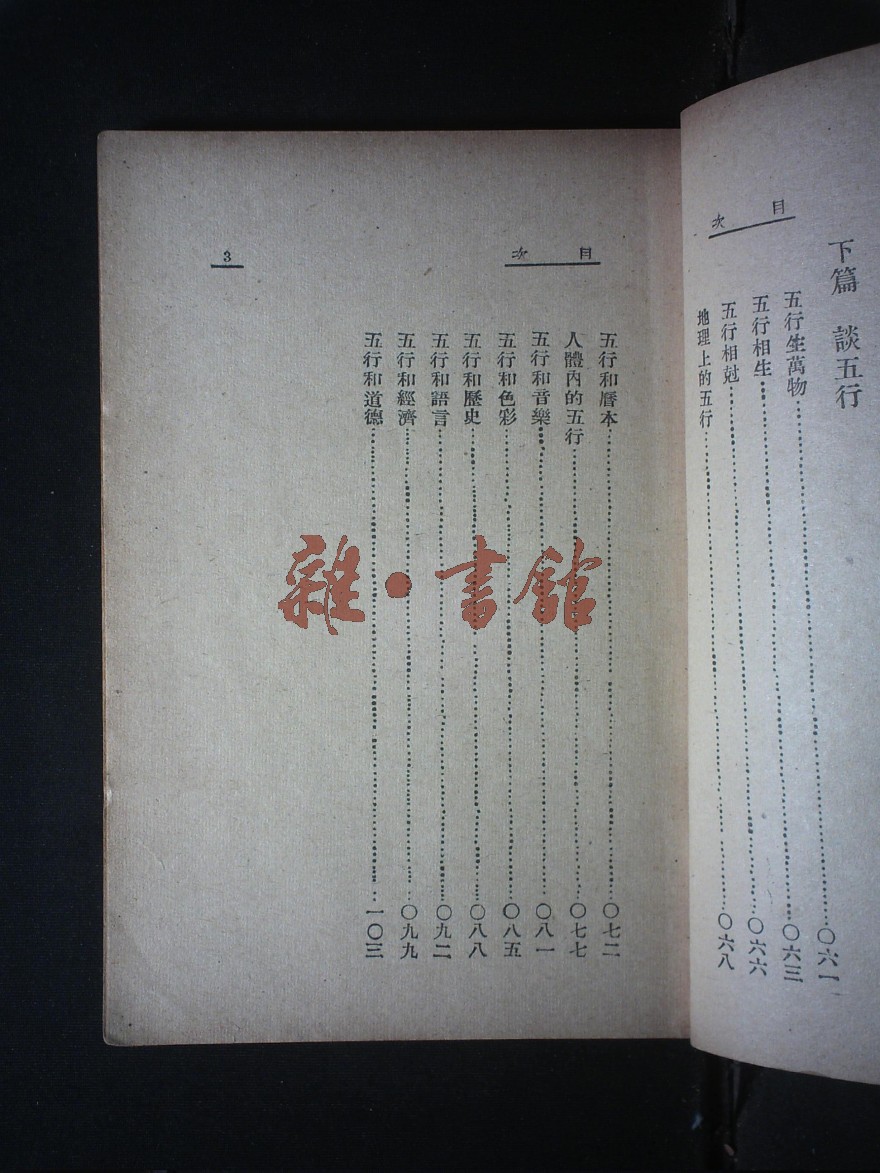 目次
下篇 談五行
五行生萬物……〇六一
五行相生……〇六三
五行相尅……〇六六
地理上的五行……〇六八
目次
3
五行和曆本……〇七二
人體內的五行……〇七七
五行和音樂……〇八一
五行和色彩……〇八五
五行和歷史……〇八八
五行和語言……〇九二
五行和經濟……〇九九
五行和道德……一〇三
雜·書館